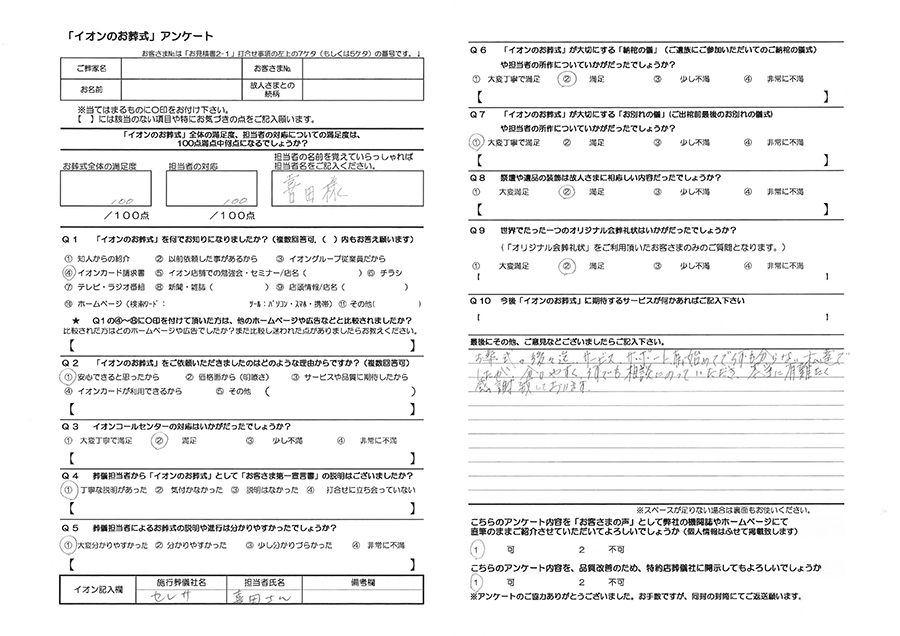 「イオンのお葬式」アンケート
お客さま№は「お見積書2-1」打合せ事項の左上の7ケタ（もしくは5ケタ）の番号です。↓
ご葬家名 お客さま№
お名前 故人さまとの続柄
※当てはまるものに○印をお付け下さい。
【　】には該当のない項目や特にお気づきの点をご記入願います。
「イオンのお葬式」全体の満足度、担当者の対応についての満足度は、
100点満点中何点になるでしょうか？
お葬式全体の満足度 担当者の対応 担当者の名前を覚えていらっしゃれば
担当者名をご記入ください。
100 100 喜田様
／100点 ／100点
Q１ 「イオンのお葬式」を何でお知りになりましたか？（複数回答可、（　）内もお答え願います）
① 知人からの紹介 ② 以前依頼した事があるから ③ イオングループ従業員だから
④ イオンカード請求書 ⑤ イオン店舗での勉強会・セミナー/店名（　） ⑥ チラシ
⑦ テレビ・ラジオ番組 ⑧ 新聞・雑誌（　） ⑨ 店頭情報/店名（　）
⑩ ホームページ（検索ワード： ツール：パソコン・スマホ・携帯） ⑪ その他（　）
★ Q１の④～⑧に○印を付けて頂いた方は、他のホームページや広告などと比較されましたか？
比較された方はどのホームページや広告でしたか？また比較し迷われた点がありましたらお教えください。
【　】
Q２ 「イオンのお葬式」をご依頼いただきましたのはどのような理由からですか？（複数回答可）
① 安心できると思ったから ② 価格面から（明瞭さ） ③ サービスや品質に期待したから
④ イオンカードが利用できるから ⑤ その他（　）
【　】
Q３ イオンコールセンターの対応はいかがだったでしょうか？
① 大変丁寧で満足 ② 満足 ③ 少し不満 ④ 非常に不満
【　】
Q４ 葬儀担当者から「イオンのお葬式」として「お客さま第一宣言書」の説明はございましたか？
① 丁寧な説明があった ② 気付かなかった ③ 説明はなかった ④ 打合せに立ち会っていない
【　】
Q５ 葬儀担当者によるお葬式の説明や進行は分かりやすかったでしょうか？
① 大変分かりやすかった ② 分かりやすかった ③ 少し分かりづらかった ④ 非常に不満
【　】
イオン記入欄 施行葬儀社名 担当者氏名 備考欄
セレサ 喜田さん
Q６ 「イオンのお葬式」が大切にする「納棺の儀」（ご遺族にご参加いただいてのご納棺の儀式）
や担当者の所作についていかがだったでしょうか？
① 大変丁寧で満足 ② 満足 ③ 少し不満 ④ 非常に不満
【　】
Q７ 「イオンのお葬式」が大切にする「お別れの儀」（ご出棺前最後のお別れの儀式）
や担当者の所作についていかがだったでしょうか？
① 大変丁寧で満足 ② 満足 ③ 少し不満 ④ 非常に不満
【　】
Q８ 祭壇や遺品の装飾は故人さまに相応しい内容だったでしょうか？
① 大変満足 ② 満足 ③ 少し不満 ④ 非常に不満
【　】
Q９ 世界でたった一つのオリジナル会葬礼状はいかがだったでしょうか？
（「オリジナル会葬礼状」をご利用頂いたお客さまのみのご質問となります。）
① 大変満足 ② 満足 ③ 少し不満 ④ 非常に不満
【　】
Q１０ 今後「イオンのお葬式」に期待するサービスが何かあればご記入下さい
【　】
最後にその他、ご意見などございましたらご記入下さい。
お葬式の後々迄、サービス、サポート有、始めてで何も分らない私達で
したが、分りやすく、何でも相談にのっていただき、本当に有難たく
感謝致しております。
※スペースが足りない場合は裏面もお使いください。
こちらのアンケート内容を「お客さまの声」として弊社の機関誌やホームページにて
直筆のままご紹介させていただいてよろしいでしょうか（個人情報はふせて掲載致します）
1 可 2 不可
こちらのアンケート内容を、品質改善のため、特約店葬儀社に開示してもよろしいでしょうか
1 可 2 不可
※アンケートのご協力ありがとうございました。お手数ですが、同封の封筒にてご返送願います。